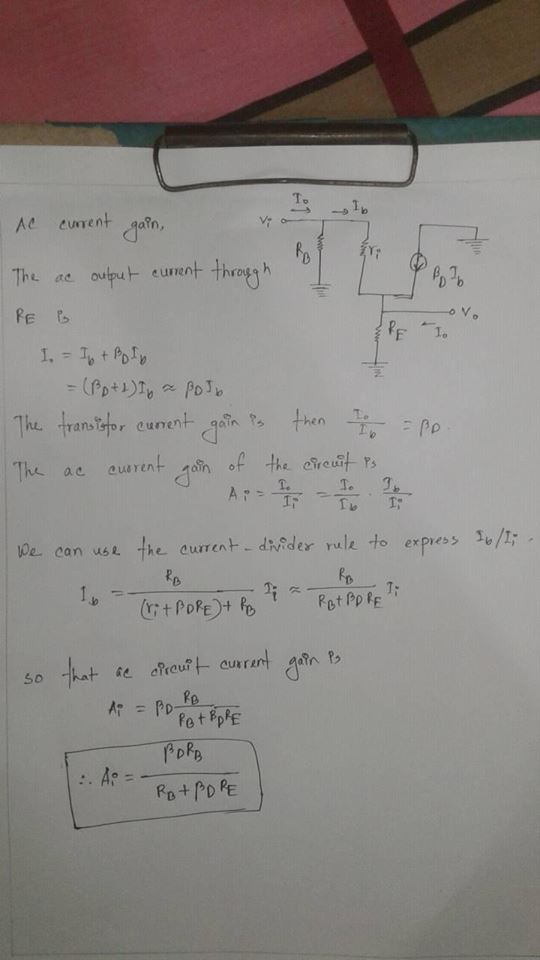 AC current gain,
The ac output current through
RE is
I. = Ib + βDIb
= (βD+1)Ib ≈ βDIb
The transistor current gain is then Io/Ib = βD.
The ac current gain of the circuit is
Ai = Io/Ii = Io/Ib · Ib/Ii
We can use the current-divider rule to express Ib/Ii.
Ib = RB/((ri+βDRE)+RB) Ii ≈ RB/(RB+βDRE) Ii
so that ac circuit current gain is
Ai = βD RB/(RB+βDRE)
∴ Ai = βDRB/(RB+βDRE)
Io
Ib
Vi
RB
ri
βDIb
Vo
RE
Io